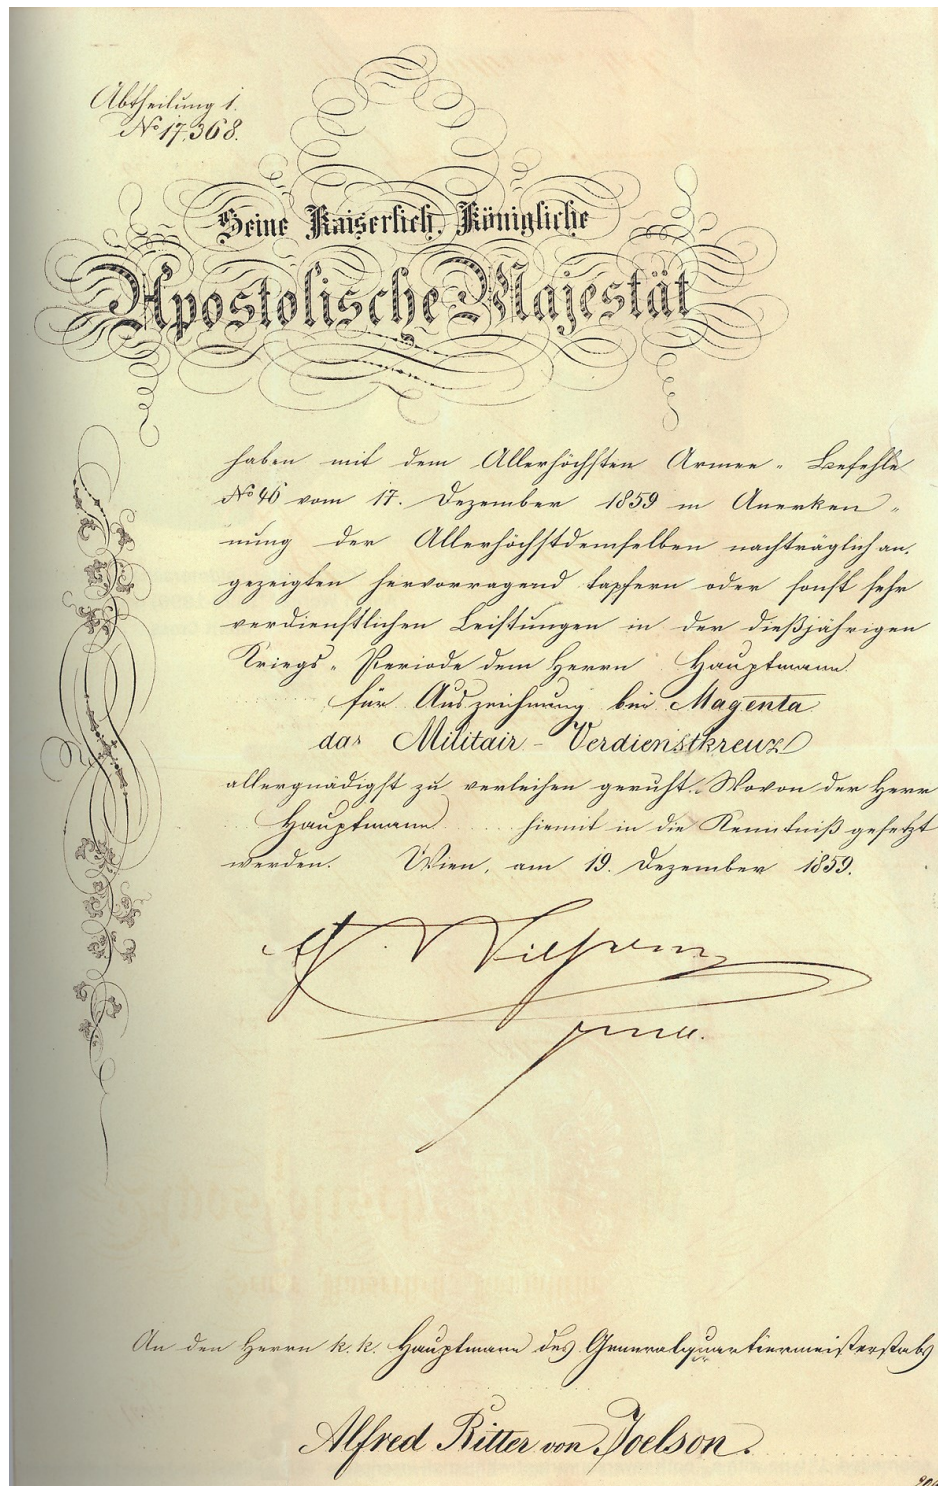 Abtheilung 1.
No 17,368.
Seine Kaiserlich, Königliche
Apostolische Majestät
haben mit dem Allerhöchsten Armee- Befehle
No 46 vom 17. Dezember 1859 in Anerken-
nung der Allerhöchstdemselben nachträglich an-
gezeigten hervorragend tapfern oder sonst sehr
verdienstlichen Leistungen in der dießjährigen
Kriegs-Periode dem Herrn Hauptmann
für Auszeichnung bei Magenta
das Militair-Verdienstkreuz
allergnädigst zu verleihen geruht. Wovon der Herr
Hauptmann hiemit in die Kenntniß gesetzt
werden. Wien, am 19. Dezember 1859.
An den Herrn k. k. Hauptmann des Generalquartiermeisterstabs
Alfred Ritter von Joelson.